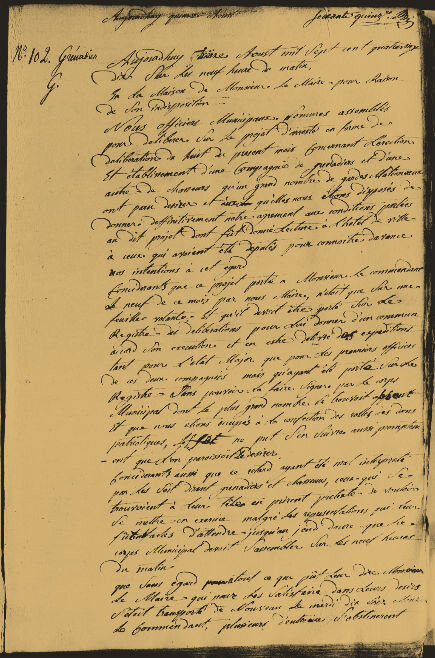 Aujourdhuy quinze Aoust
soixante quinze
No. 102. Grenadier
G.
Aujourdhuy Aoust mil Sept cent quatre vingt
dix Sur les neuf heure du matin
En la Maison de Monsieur le Maire pour Raison
de Son Indisposition
Nous officiers Municipaux assemblés
pour deliberer Sur le projet d'arreté en forme de
deliberation du huit du present mois Concernant
Et Etablissement d'une Compagnie de grenadiers et d'une
autre de chasseurs qu'un grand nombre de gardes Nationaux
ont paru desirer et qu'elles nous disposés de
donner deffinitivement notre agrement aux conditions portées
au dit projet dont fut donné Lecture a l'hotel de ville
a ceux qui avoient été deputés pour connaitre davance
nos intentions a cet egard
Considerants que ce projet porté a Monsieur le commandant
le neuf de ce mois par nous Maire, n'etoit que Sur une
feuille volante et qu'il devoit être porté Sur le
Registre des deliberations pour Lui donner d'un commun
acord Son execution et en etre delivré des expeditions
tant pour l'etat Major que pour les premiers officiers
de ces deux compagnies mais qu'ayant été porté Sur le
Registre Sans pouvoir le faire Signer par le corps
Municipal dont le plus grand nombre Se trouvoit absent
Et que nous etions occupés a la confection des rolles des dons
patriotiques, il ne put S'en Suivre aussi promptem-
-ent que l'on paraissoit le desirer.
Considerants aussi que ce retard ayant été mal interpreté
par les Soit disant grenadiers et chasseurs, ceux-ci Se
trouvoient a leur tête en prirent pretexte de vouloir
Se mettre en exercice malgré les representations qui leur
d'attendre jusqu'au jeudi douze que le
corps Municipal devoit S'assembler Sur les neuf heures
du matin
que Sans egard a tout ce que put Leur dire Monsieur
le Maire qui
S'etoit transporté de Nouveau le mardi dix chez
le Commendant, plusieurs d'entreux S'obstinerent